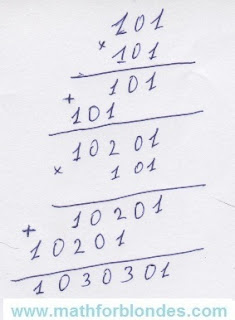 101
× 101
101
+
101
10201
× 101
10201
+
10201
1030301
www.mathforblondes.com